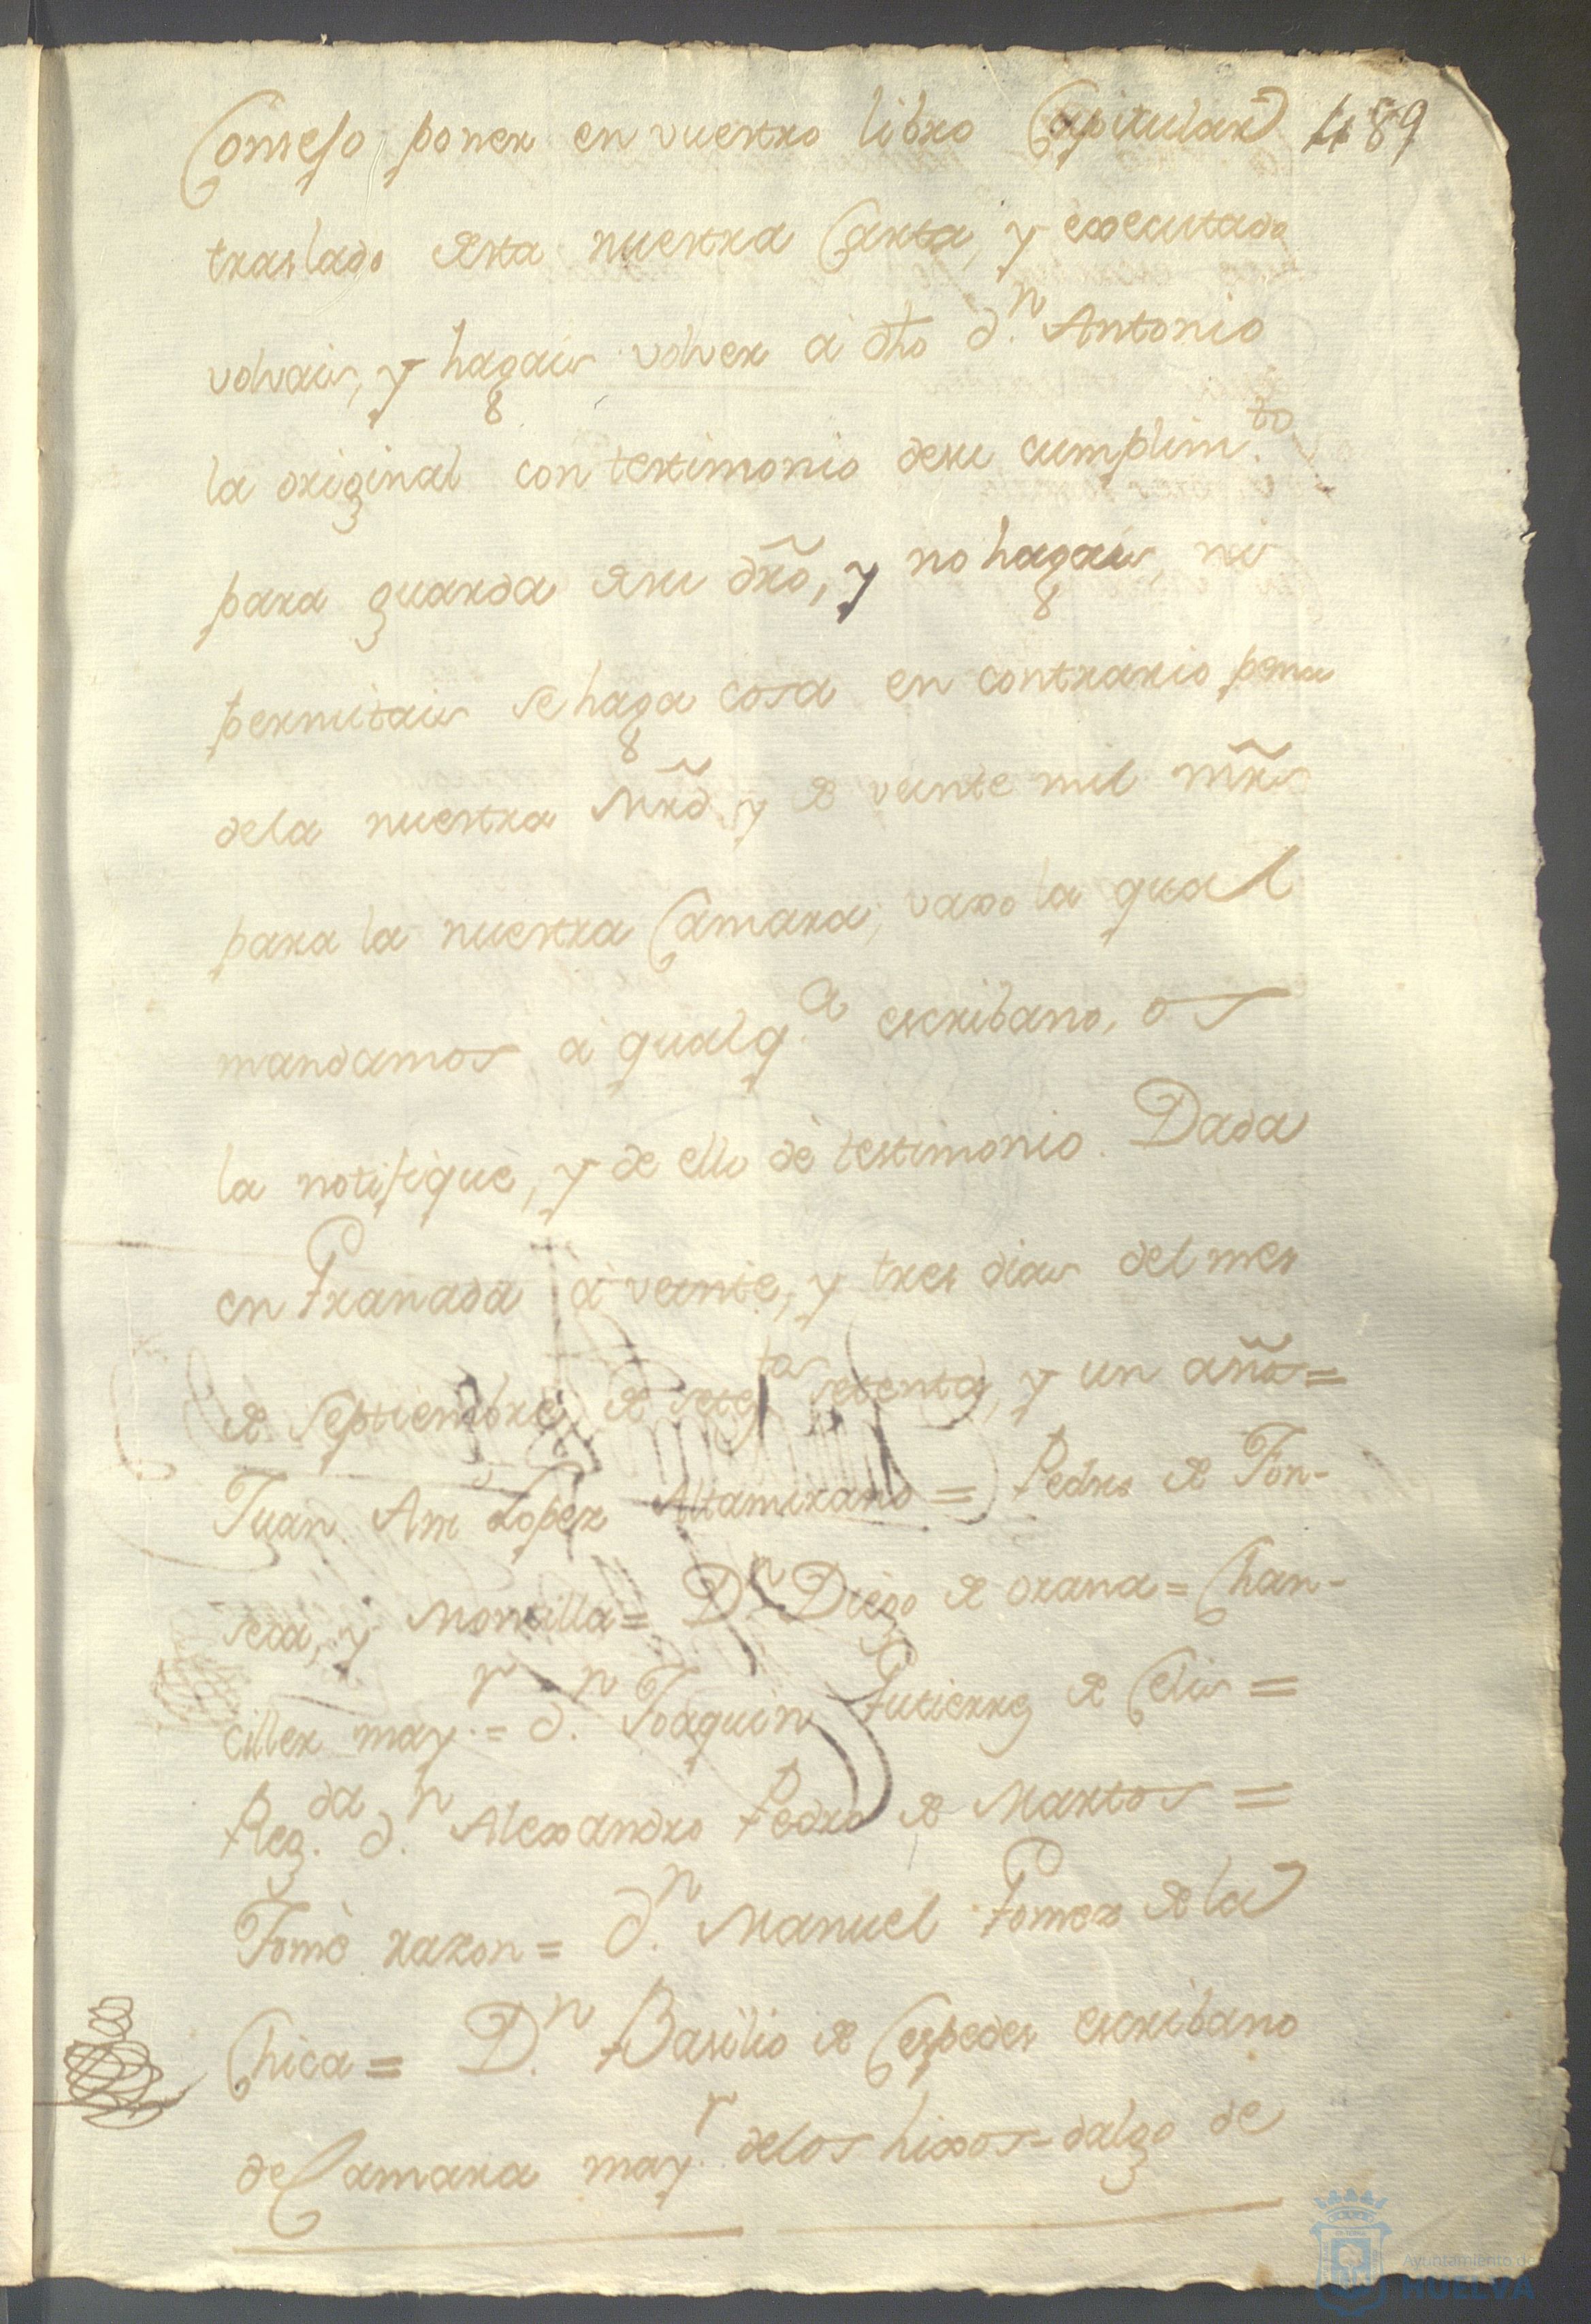 Conceso poner en vuestro libro Capitular 489
traslado desta nuestra Carta, y executado
volvais, y hagais volver á dho d.n Antonio
la original con testimonio desu cumplim.to
para guarda desu dro, y no hagais, ni
permitais se haga cosa en contrario pena
dela nuestra Mrd y de veinte mil mrs
para la nuestra Camara, vaxo la qual
mandamos á qualq.a escribano, os
la notifique, y de ello dè testimonio. Dada
en Granada á veinte, y tres dias del mes
de septiembre de sete.tos setenta, y un años=
Juan Ant.o Lopez Altamirano = Pedro de Fon-
seca, y Monsilla= D.n Diego de orana= Chan-
ciller may.r = d.n Joaquin Gutierrez de Celis =
Reg.da d.n Alexandro Pedro de Martos =
Tomè razon= d.n Manuel Gomez de la
Chica= D.n Basilio de Cespedes escribano
de Camara may.r delos hixos-dalgo de
Ayuntamiento de
HUELVA